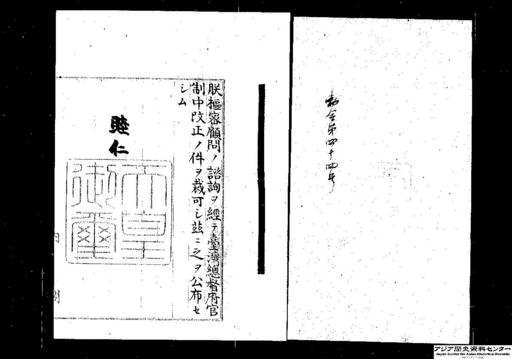 勅令第四十四号
朕樞密顧問ノ諮詢ヲ經テ臺灣總督府官
制中改正ノ件ヲ裁可シ茲ニ之ヲ公布セ
シム
睦仁
天皇
御璽
内閣
アジア歴史資料センター
Japan Center for Asian Historical Records